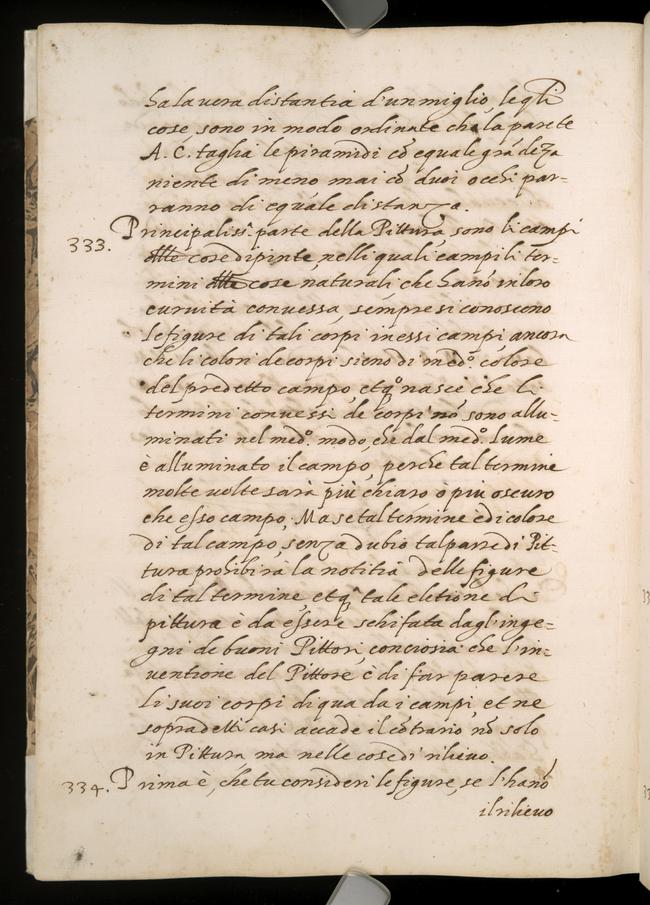 ha la vera distantia d'un miglio, le q̃li
cose, sono in modo ordinate che la parete
A. C. taglia le piramidi cõ equale grãdeza
niente di meno mai cõ duoi occhi par-
ranno di equale distanza.
333. Principaliss.ͣ parte della Pittura, sono li campi
delle cose dipinte, nelli quali campi li ter-
mini delle cose naturali che hanõ in loro
curvità convessa, sempre si conoscono
le figure di tali corpi in essi campi, ancora
che li colori de corpi sieno di med.º colore
del predetto campo, et q.º nasce che li
termini convessi de corpi nõ, sono allu-
minati nel med.º modo, che dal med.º lume
è alluminato il campo, perche tal termine
molte volte sarà più chiaro o più oscuro
che esso campo, Ma se tal termine è di colore
di tal campo, senza dubio tal parte di Pit-
tura prohibirà la notitia delle figure
di tal termine, et q.ͣ tale eletione di
pittura è da essere schifata dagl'inge-
gni de buoni Pittori, conciosia che l'in-
ventione del Pittore è di far parere
li suoi corpi di qua da i campi, et ne
sopradetti casi accade il cõtrario, nõ solo
in Pittura, ma nelle cose di rilievo.
334. Prima è, che tu consideri le figure, se l'hanõ
il rilievo